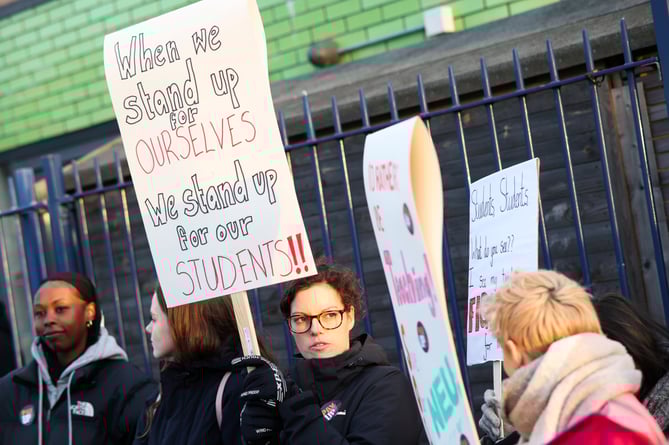 When we
stand up
for
OURSELVES
We stand up
for our
STUDENTS!!
I'D RATHER
BE
Teaching!
NEU
Students, Students,
What do you see?
I see my
THE
NORTH
FACE